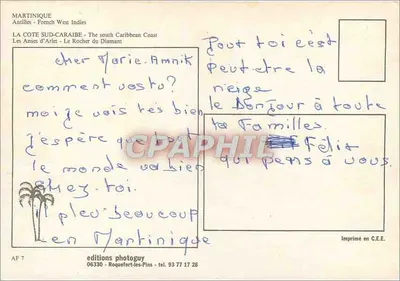 MARTINIQUE
Antilles - French West Indies
LA COTE SUD-CARAIBE - The south Caribbean Coast
Les Anses d'Arlet - Le Rocher du Diamant
cher Marie-Annik
comment vas tu?
moi je vais tés bien
j'espère que tout
le monde va bien
chez-toi.
il pleu beaucoup
en Martinique
Pout toi c'est
peut-etre la
neige
le Bonjour à toute
ta Familles.
Félix
qui pens à vous.
CPARAMA
AF 7
editions photoguy
06330 - Roquefort-les-Pins - tel. 93 77 17 28
Imprimé en C.E.E.